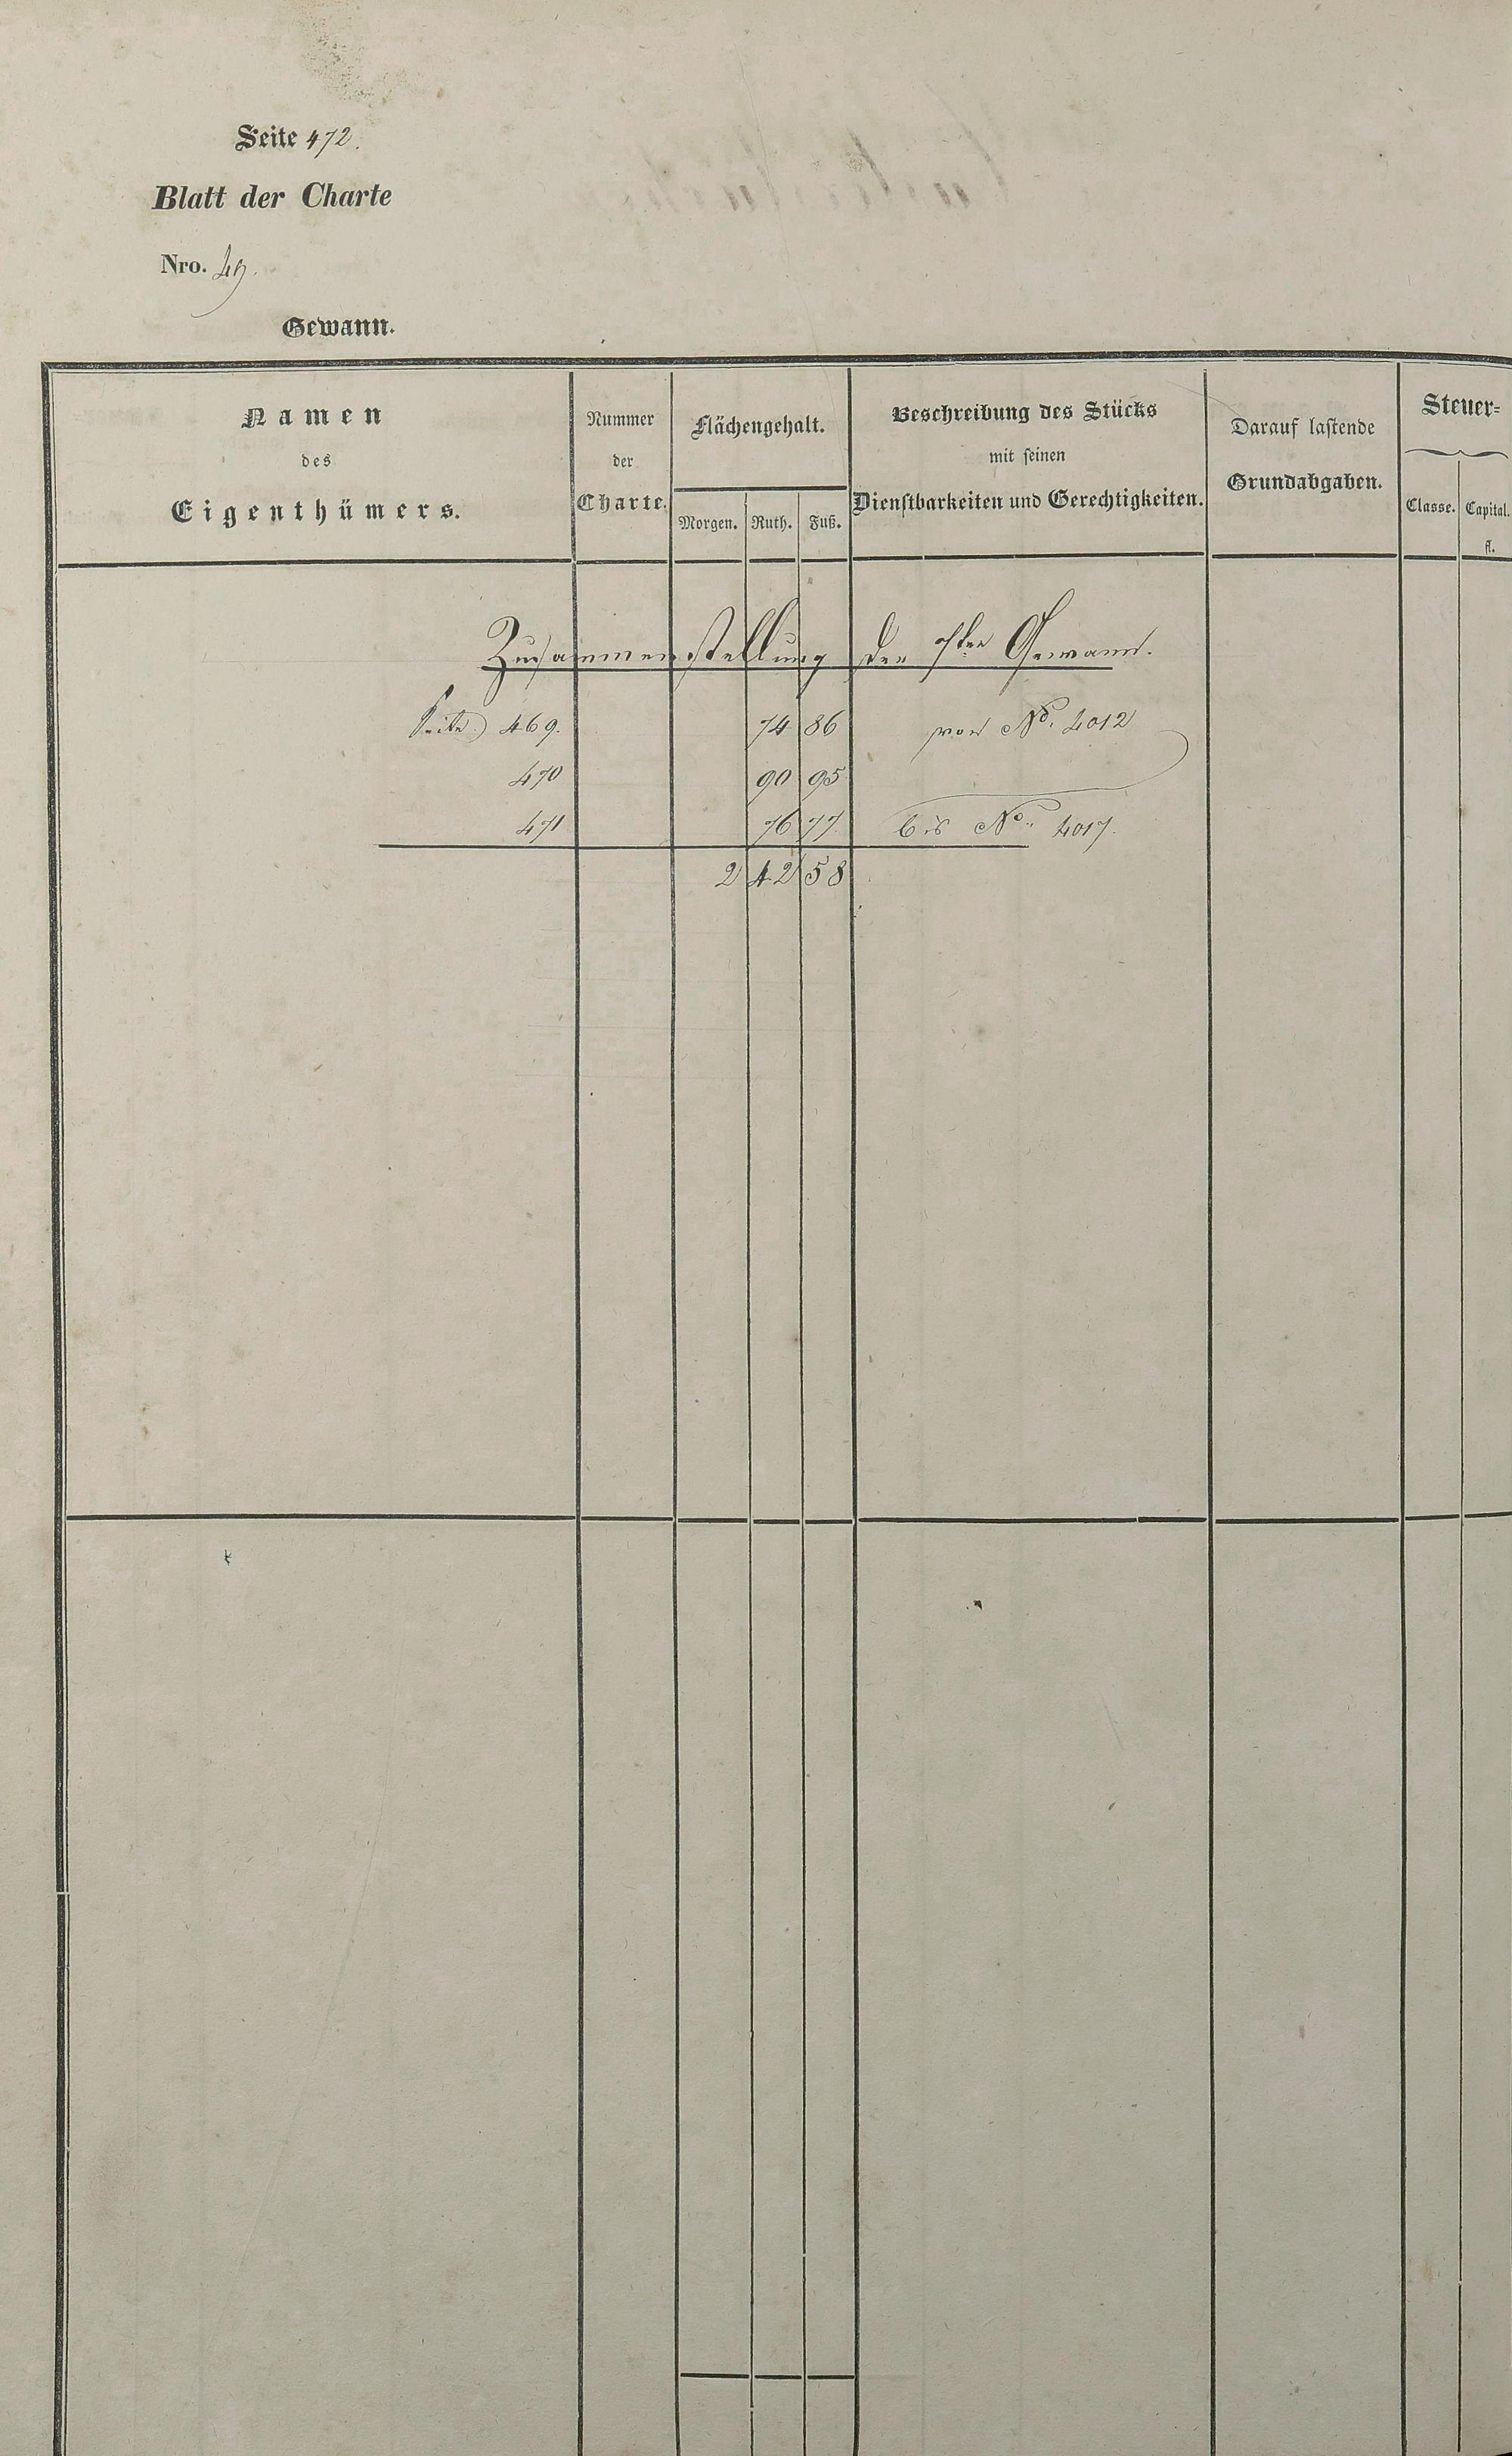 Seite 472.
Blatt der Charte
Nro. 49.
Gewann.
Namen des Eigenthümers.
Nummer der Charte.
Flächengehalt.
Morgen. Ruth. Fuß.
Beschreibung des Stücks mit seinen Dienstbarkeiten und Gerechtigkeiten.
Darauf lastende Grundabgaben.
Steuer=
Classe. Capital.
fl.
Zusammenstellung der 1ten Gewann.
Seite 469. 74 86 von No. 4012
470 90 95
471 76 77. bis No. 4017.
2 42 58